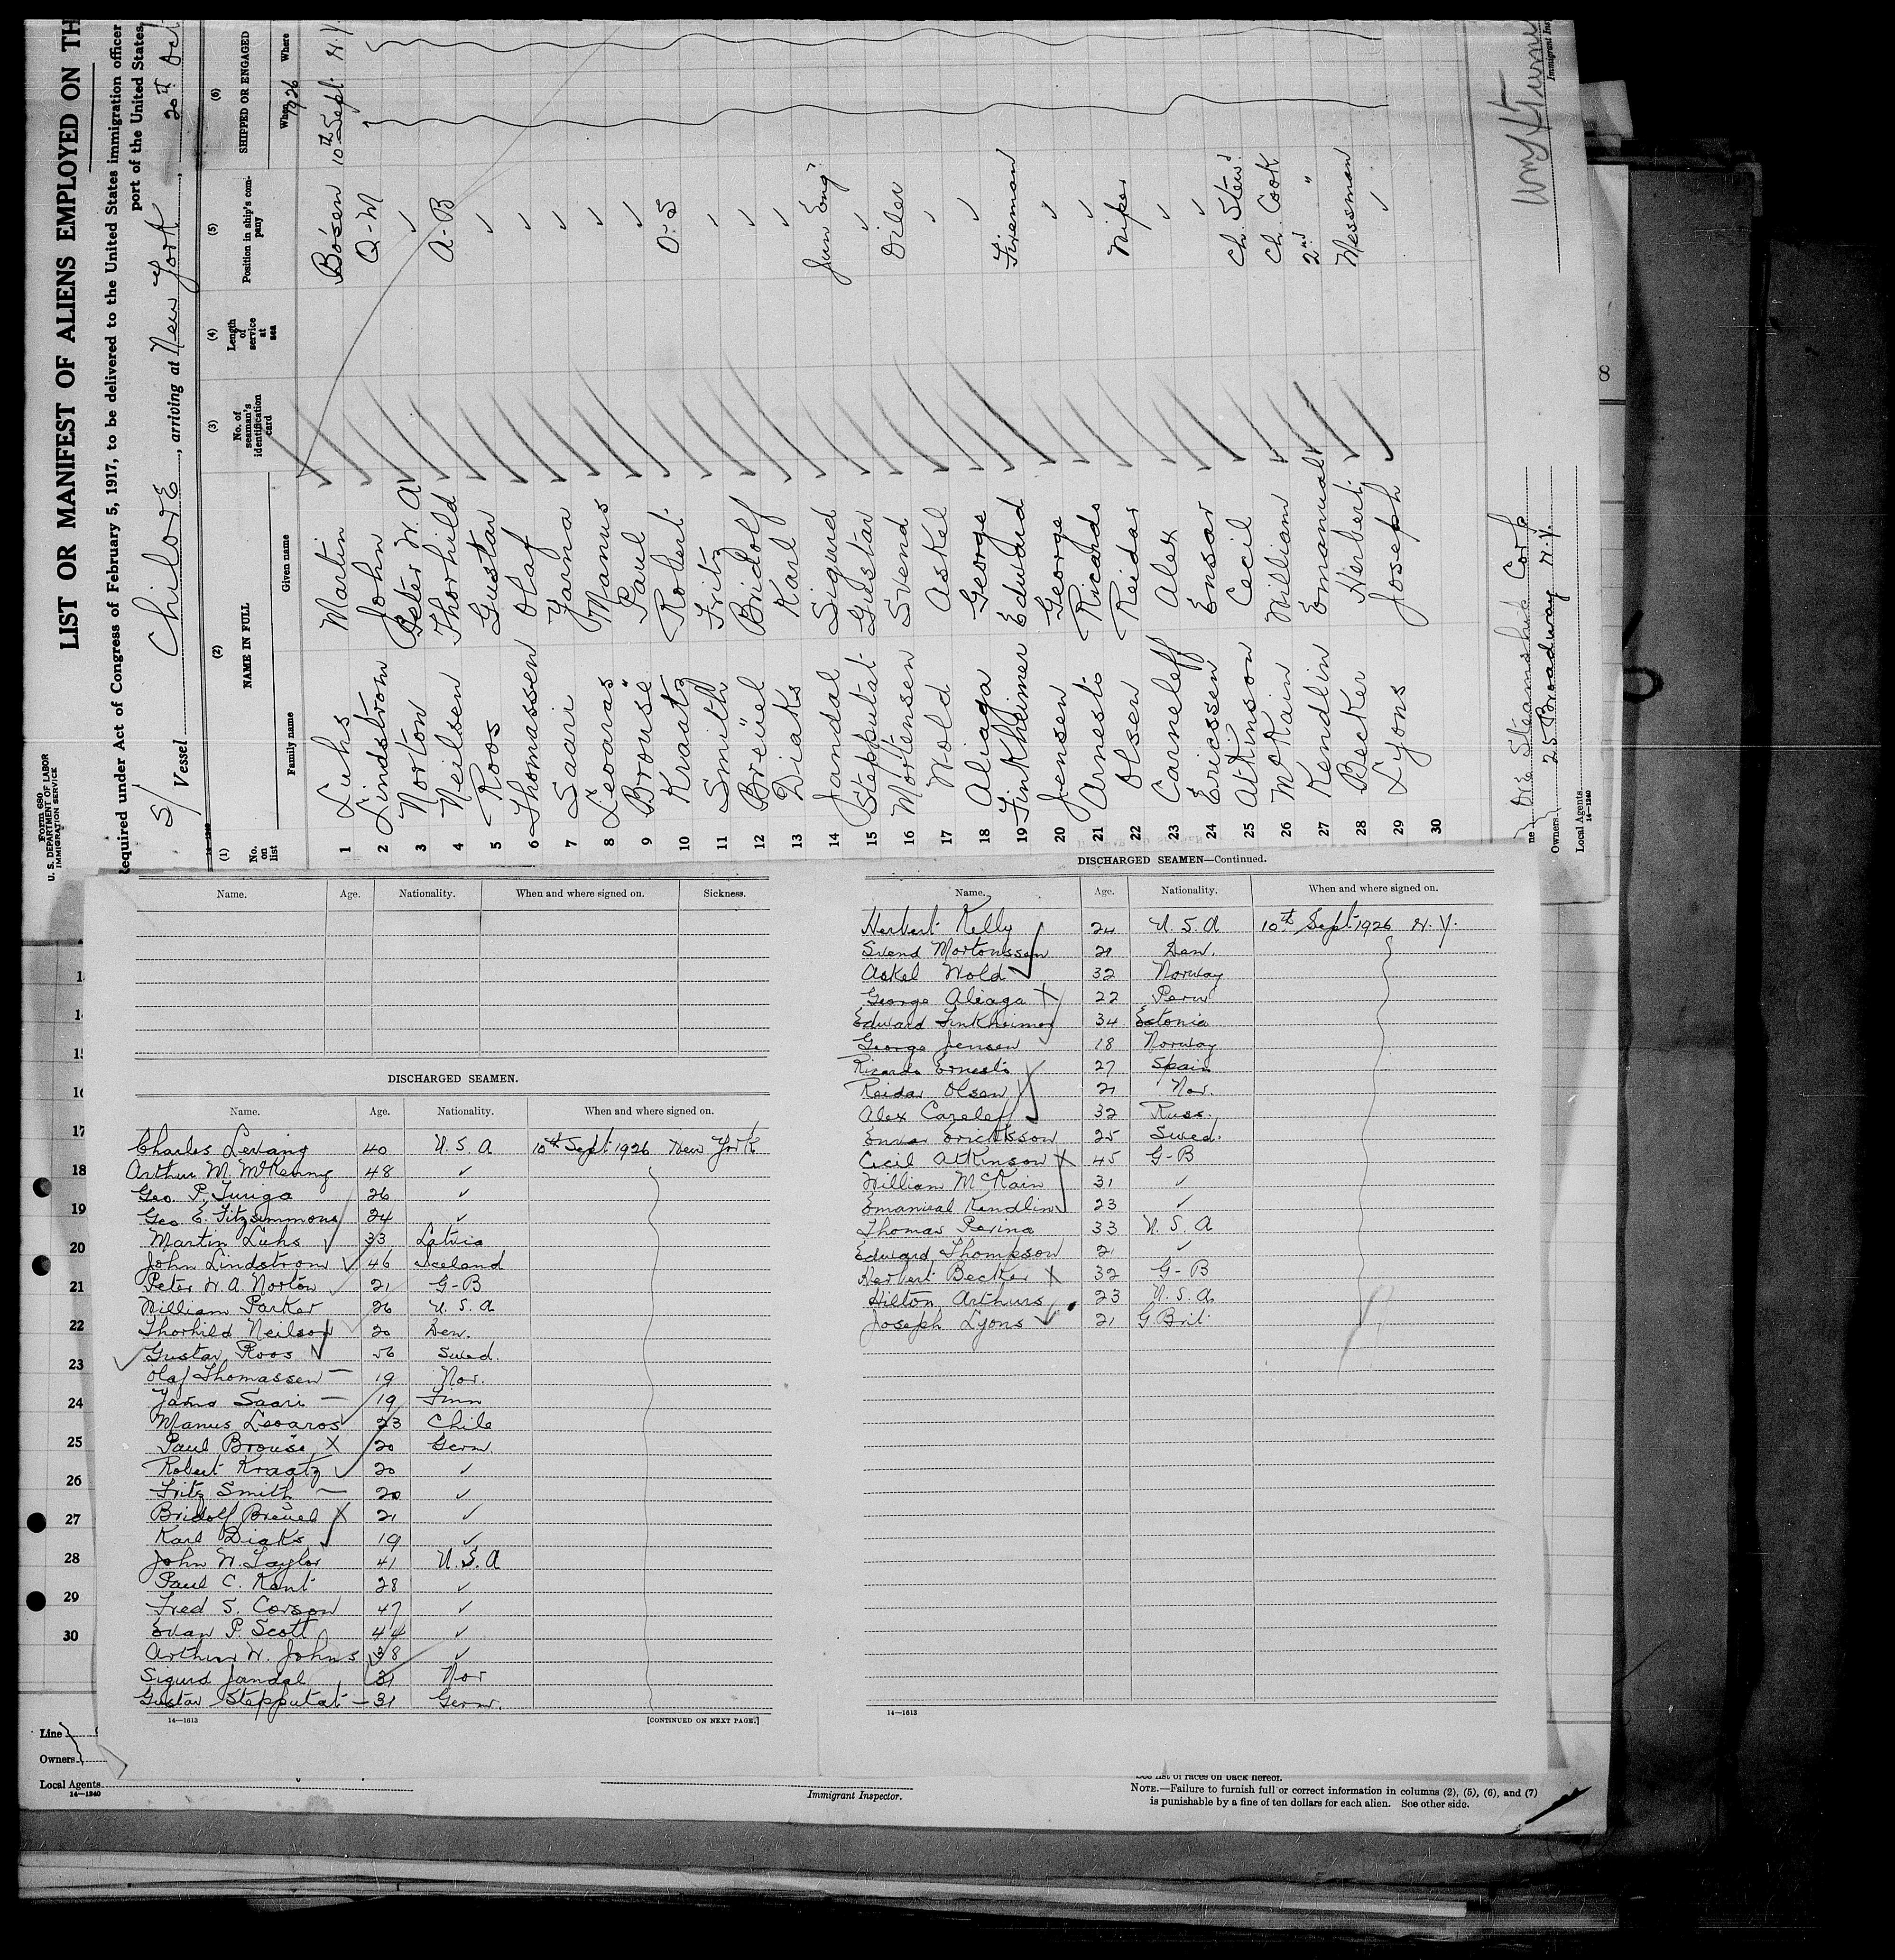 Form 680
U. S. DEPARTMENT OF LABOR
IMMIGRATION SERVICE
LIST OR MANIFEST OF ALIENS EMPLOYED ON TH
Required under Act of Congress of February 5, 1917, to be delivered to the United States immigration officer
port of the United States
S/ Vessel Chilore, arriving at New York, 20th Oct
(1) (2) (3) (4) (5) (6)
No. on list
NAME IN FULL
Family name Given name
No. of seaman's identification card
Length of service at sea
Position in ship's company
SHIPPED OR ENGAGED
When Where
1926
1 Luhs Martin Bos'en 10th Sept. N.Y.
2 Lindstrom John Q-M
3 Norton Peter W. A ✓
4 Neilsen Thorhild A-B
5 Roos Gustav ✓
6 Thomassen Olaf ✓
7 Saari Yarna ✓
8 Leoaras Manus ✓
9 Brousë Paul ✓
10 Kraatz Robert O-S
11 Smith Fritz ✓
12 Breüel Bridolf ✓
13 Diaks Karl ✓
14 Jandal Sigurd Jun Eng'
15 Stepputat Gustav ✓
16 Mortensen Svend Oiler
17 Wold Askel ✓
18 Aliaga George ✓
19 Finkheimer Edward Fireman
20 Jensen George ✓
21 Arnesti Ricardo ✓
22 Olsen Reidar Wiper
23 Carneleff Alex ✓
24 Ericssen Ensar ✓
25 Atkinson Cecil Ch. Stew'd
26 McKain William Ch. Cook
27 Kendlin Emanual 2nd "
28 Becker Herbert Messman
29 Lyons Joseph ✓
30
Ore Steamship Corp
Owners 25 Broadway N.Y.
Local Agents
14—1240
Immigrant Ins
Name. Age. Nationality. When and where signed on. Sickness.
DISCHARGED SEAMEN.
Name. Age. Nationality. When and where signed on.
Charles Levang 40 U. S. A 10th Sept. 1926 New York
Arthur M. McKenny 48 ✓
Geo. P. Turiga 26 ✓
Geo. E. Fitzsimmons 24 ✓
Martin Luhs 33 Latvia
John Lindstrom 46 Iceland
Peter W. A. Norton 21 G-B
William Parker 26 U. S. A
Thorhild Neilson 20 Den.
Gustav Roos 56 Swed.
Olaf Thomassen 19 Nor.
Yarno Saari 19 Finn
Manus Leoaros 23 Chile
Paul Brousë 20 Germ.
Robert Kraatz 20 ✓
Fritz Smith 20 ✓
Bridolf Breüel 21 ✓
Karl Diaks 19 ✓
John W. Taylor 41 U. S. A
Paul C. Kent 28 ✓
Fred S. Corson 47 ✓
Evan P. Scott 44 ✓
Arthur W. Johns 38 ✓
Sigurd Jandal 31 Nor
Gustav Stepputat 31 Germ.
14—1613 [CONTINUED ON NEXT PAGE.]
DISCHARGED SEAMEN—Continued.
Name. Age. Nationality. When and where signed on.
Herbert Kelly 24 U. S. A 10th Sept. 1926 N. Y.
Svend Mortonssen 21 Den.
Askel Wold 32 Norway
George Aliaga 22 Peru
Edward Finkheimer 34 Estonia
George Jensen 18 Norway
Ricardo Ernesto 27 Spain
Reidar Olsen 21 Nor.
Alex Cazeleff 32 Russ.
Ennar Ericksson 25 Swed.
Cecil Atkinson 45 G-B
William McKain 31 ✓
Emanual Kendlin 23 ✓
Thomas Perina 33 U. S. A
Edward Thompson 21 ✓
Herbert Becker 32 G-B
Hilton Arthurs 23 U. S. A.
Joseph Lyons 21 G Brit.
14—1613
17
18
19
20
21
22
23
24
25
26
27
28
29
30
Line
Owners
Local Agents
14—1240
Immigrant Inspector.
See list of races on back hereof.
NOTE.—Failure to furnish full or correct information in columns (2), (5), (6), and (7)
is punishable by a fine of ten dollars for each alien. See other side.